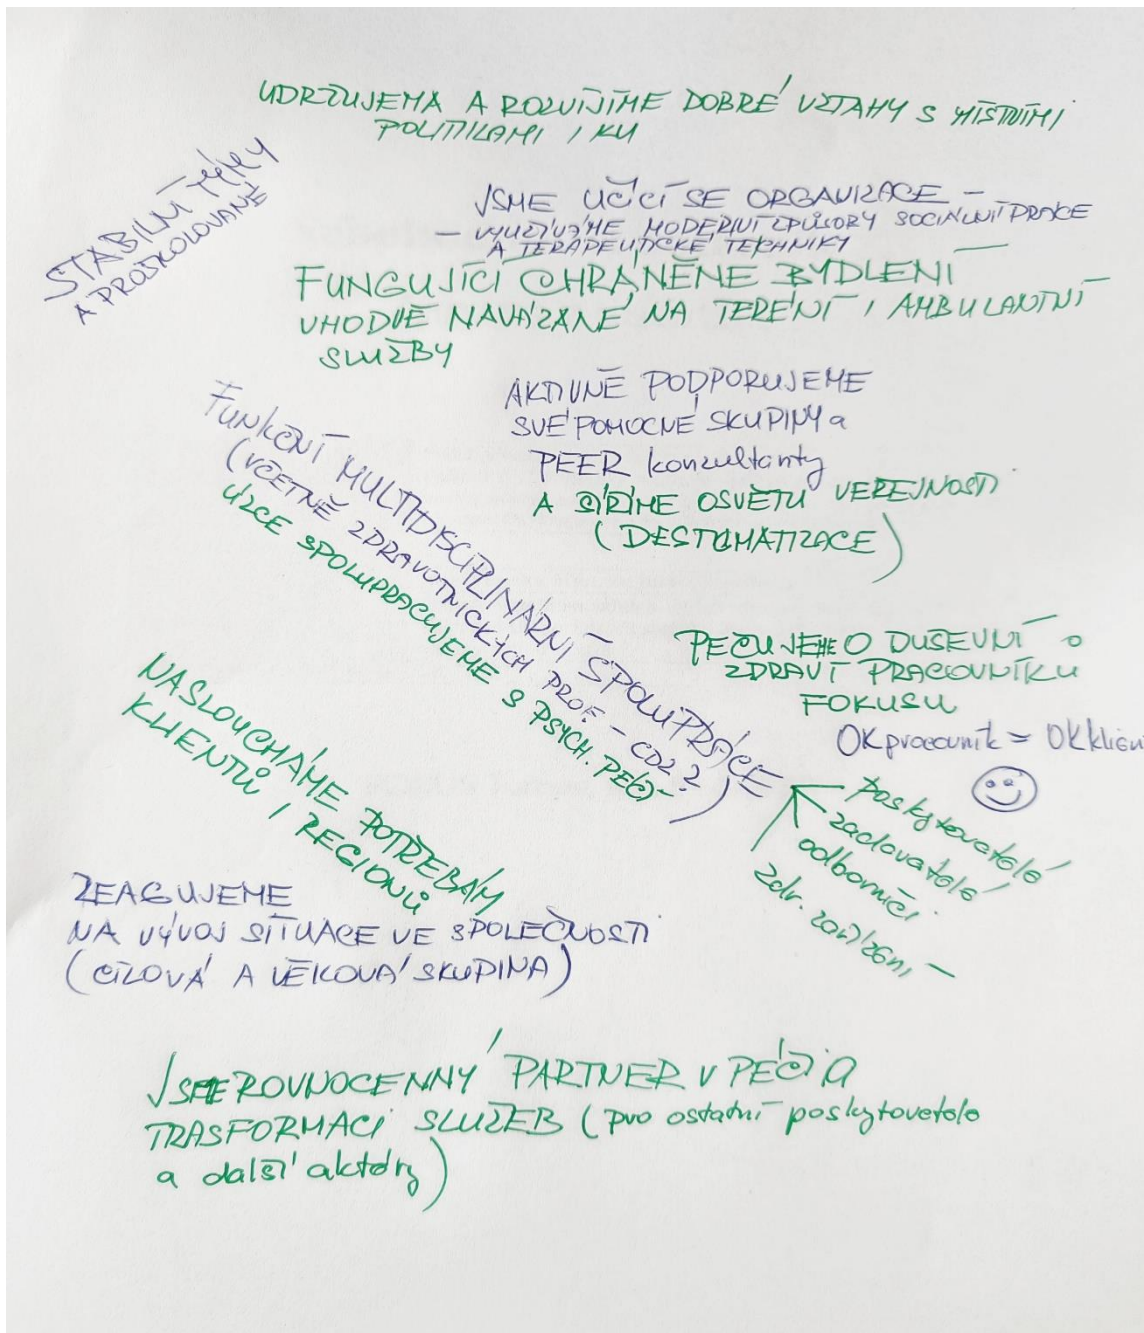 UDRŽUJEMA A ROZVÍJÍME DOBRÉ VZTAHY S MÍSTNÍMI
POLITIKAMI I KU
STABILNÍ TÝMY
A PROŠKOLOVANÉ
JSME UČÍCÍ SE ORGANIZACE –
– VYUŽÍVÁME MODERNÍ ZPŮSOBY SOCIÁLNÍ PRÁCE
A TERAPEUTICKÉ TECHNIKY
FUNGUJÍCÍ CHRÁNĚNÉ BYDLENÍ
VHODVĚ NAVÁZANÉ NA TERÉNÍ I AMBULANTNÍ
SLUŽBY
AKTIVNĚ PODPORUJEME
SVÉPOMOCNÉ SKUPINY a
PEER konzultanty
A ŠÍŘÍME OSVĚTU VEŘEJNOSTI
(DESTIGMATIZACE)
FUNKČNÍ MULTIDISCIPLINÁRNÍ SPOLUPRÁCE
(VČETNĚ ZDRAVOTNICKÝCH PROF. – CDZ?)
ÚZCE SPOLUPRACUJEME S PSYCH. PÉČÍ
PEČUJEME O DUŠEVNÍ
ZDRAVÍ PRACOVNÍKŮ
FOKUSU
OK pracovník = OK klient
poskytovatelé
zadavatelé
odborníci
zdr. zařízení –
NASLOUCHÁME POTŘEBÁM
KLIENTŮ I REGIONŮ
REAGUJEME
NA VÝVOJ SITUACE VE SPOLEČNOSTI
(CÍLOVÁ A VĚKOVÁ SKUPINA)
JSME ROVNOCENNÝ PARTNER V PÉČI A
TRASFORMACI SLUŽEB (pro ostatní poskytovatele
a další aktéry)